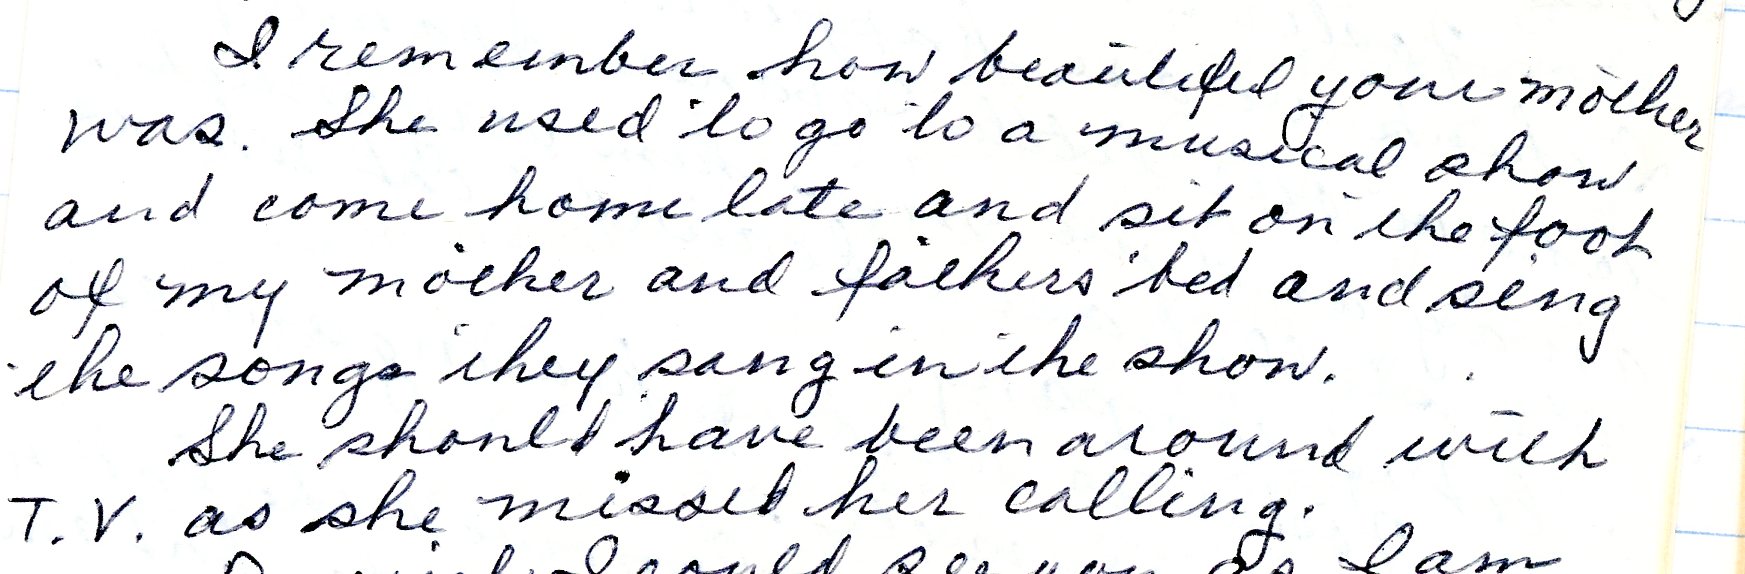 I remember how beautiful your mother
was. She used to go to a musical show
and come home late and sit on the foot
of my mother and fathers bed and sing
the songs they sang in the show.
She should have been around with
T.V. as she missed her calling.
I wish I could see you as I am